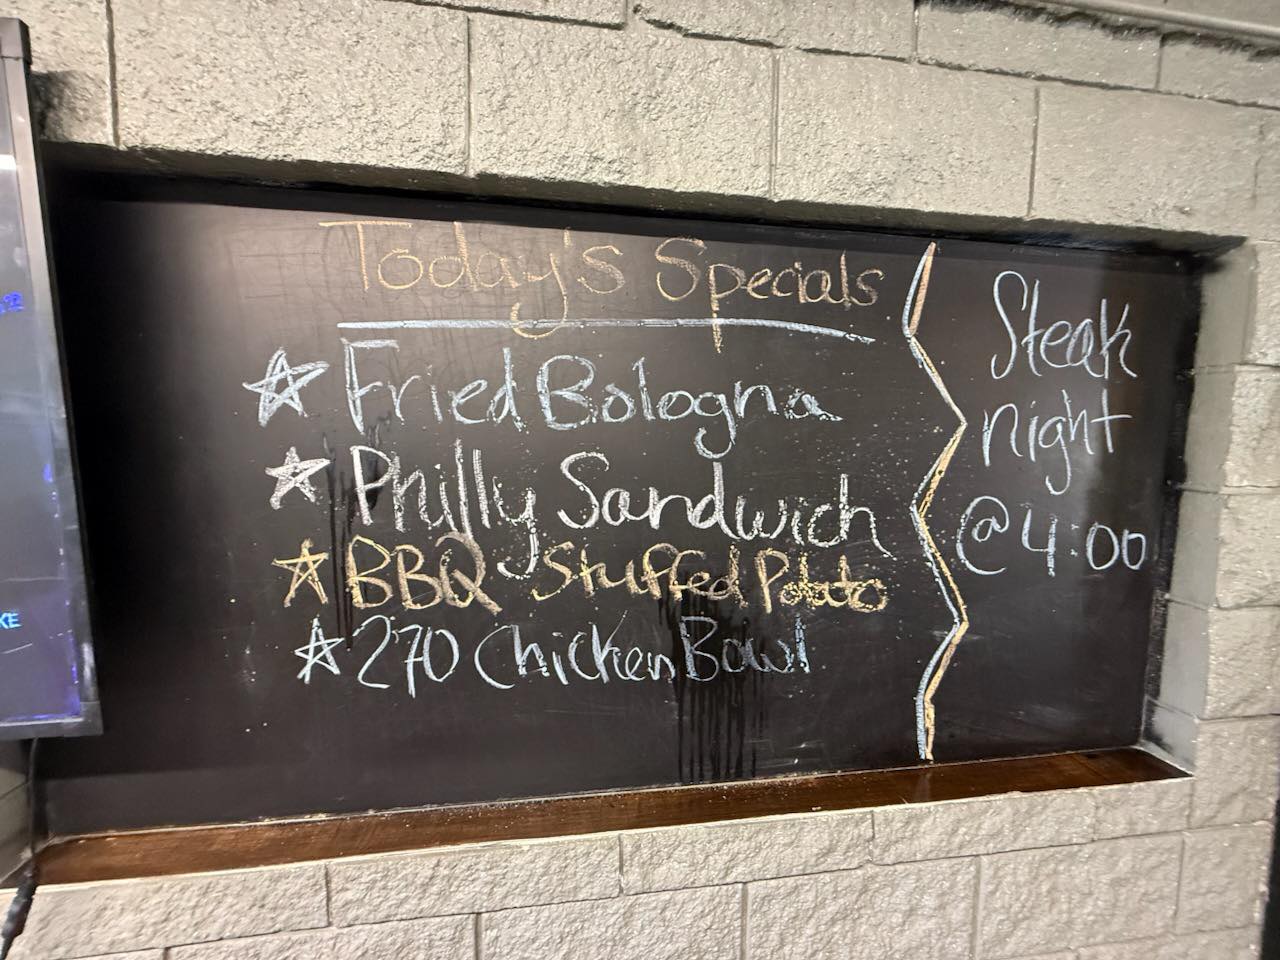 Today's Specials
Fried Bologna
Philly Sandwich
BBQ Stuffed Potato
270 Chicken Bowl
Steak
night
@ 4:00
KE